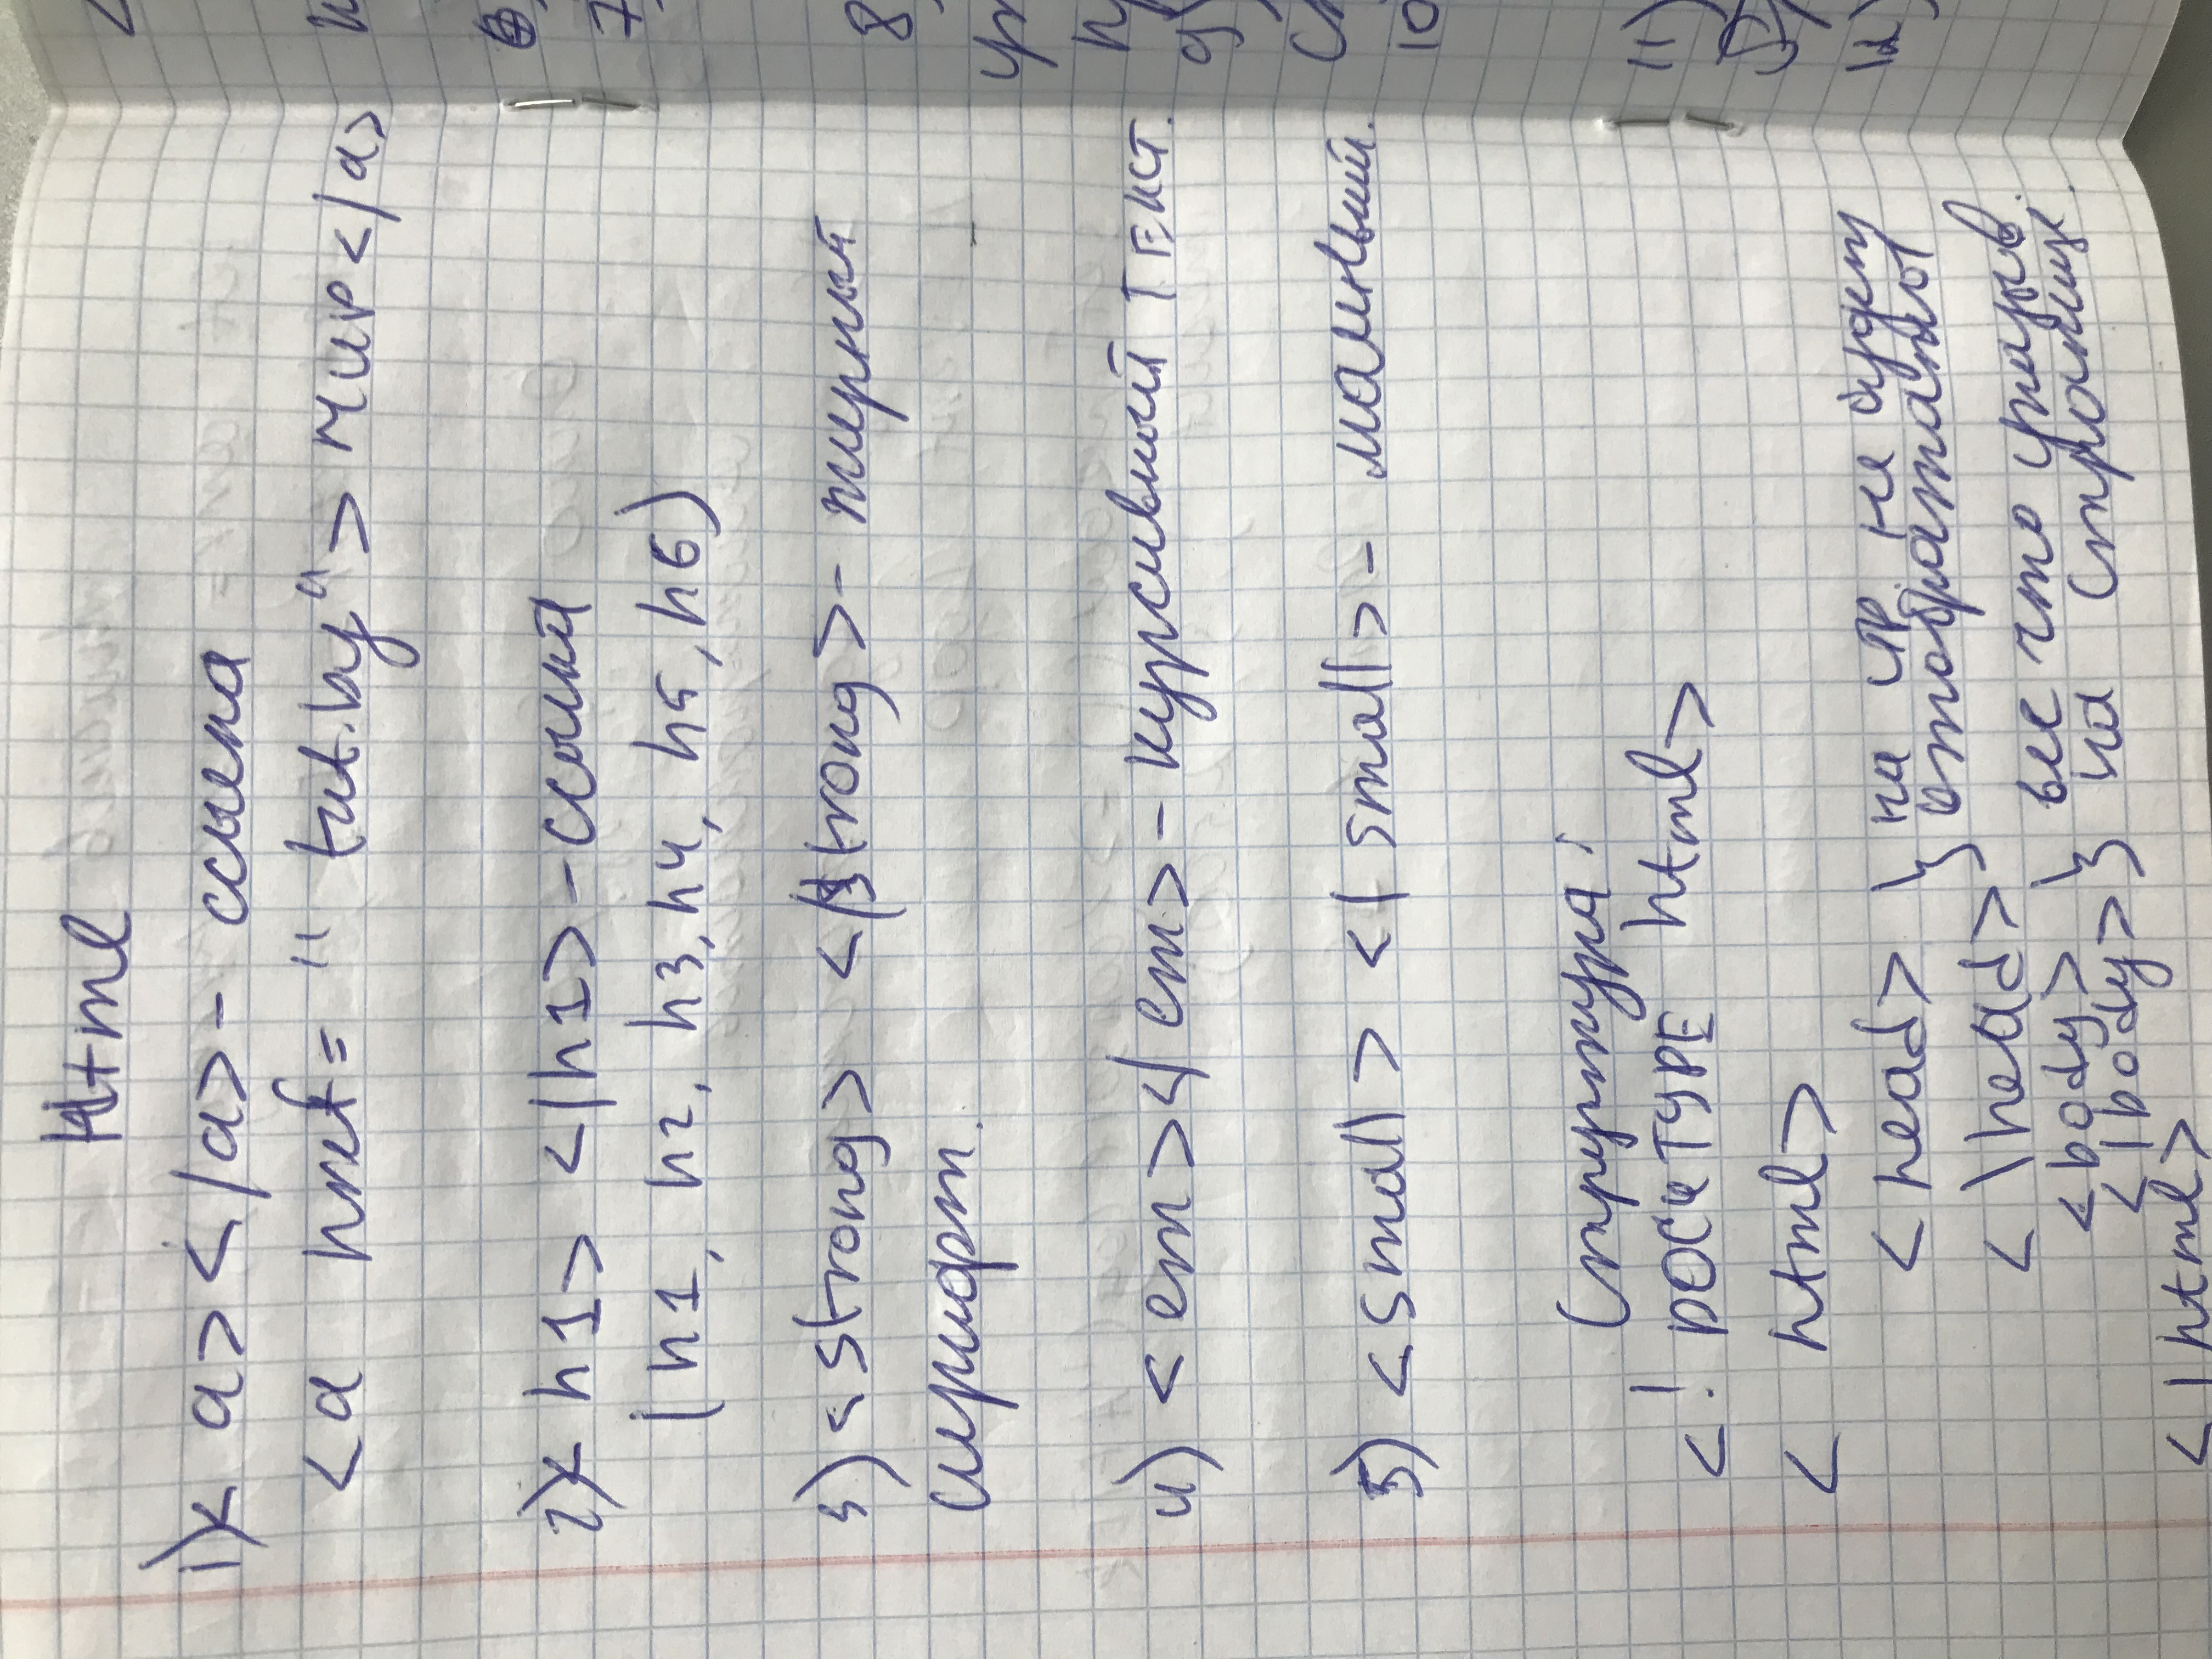 Html
1)< a></a>- ссылка
<a href= " tut.by"> мир</a>
2)< h1> </h1>-ссылки
(h1, h2, h3, h4, h5, h6)
3) <strong> </strong>- жирный
шрифт.
4) <em></em>- курсивный текст.
5) <small> </small>-
Структура:
<! DOCUTYPE html>
< html>
<head> } на стр. не будет
отображаться
<\head>
<body> } все что указыв.
на странице.
</body>
</html>
6,
7
8,
9)
10
11)
12)